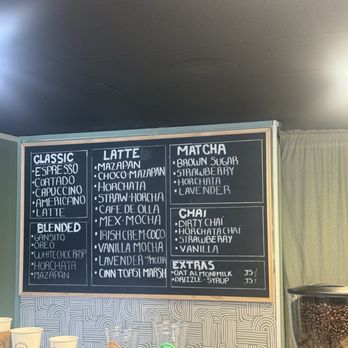 CLASSIC
• ESPRESSO
• CORTADO
• CAPUCCINO
• AMERICANO
• LATTE
BLENDED
• GANSITO
• OREO
• WHITE CHOC RASP
• HORCHATA
• MAZAPAN
LATTE
• MAZAPAN
• CHOCO-MAZAPAN
• HORCHATA
• STRAW-HORCHA
• CAFE DE OLLA
• MEX-MOCHA
• IRISH CREM-COCO
• VANILLA MOCHA
• LAVENDER
• CINN TOAST MARSH
MATCHA
• BROWN SUGAR
• STRAWBERRY
• HORCHATA
• LAVENDER
CHAI
• DIRTY CHAI
• HORCHATA CHAI
• STRAWBERRY
• VANILLA
EXTRAS
• OAT ALMOND MILK
• DRIZZLE - SYRUP